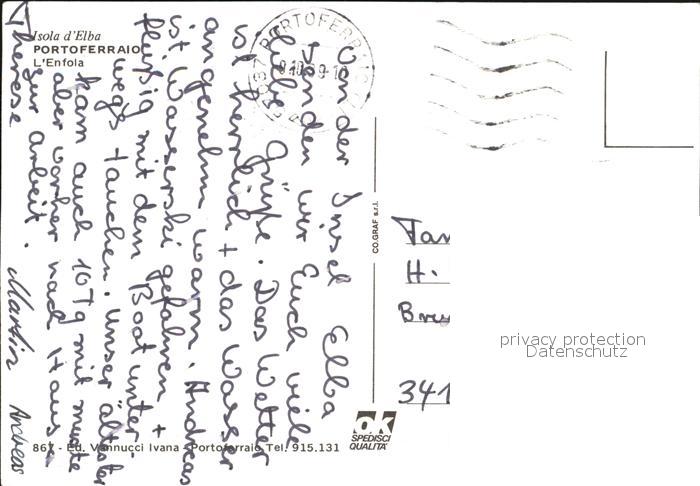 Isola d'Elba
PORTOFERRAIO
L'Enfola
PORTOFERRAIO
57037
Von der Insel Elba
senden wir Euch viele
liebe Grüße. Das Wetter
ist herrlich + das Wasser
angenehm warm. Andreas
ist Wasserski gefahren +
fleißig mit dem Boot unter-
wegs + tauchen. Unser ältester
kam auch 10 Tg mit mußte
aber vorher nach Hause
zur Arbeit.
Therese Martin Andreas
Fam
H.
341
CO.GRAF s.r.l.
ok
SPEDISCI
QUALITA'
867 - Ed. Vannucci Ivana - Portoferraio Tel. 915.131
privacy protection
Datenschutz